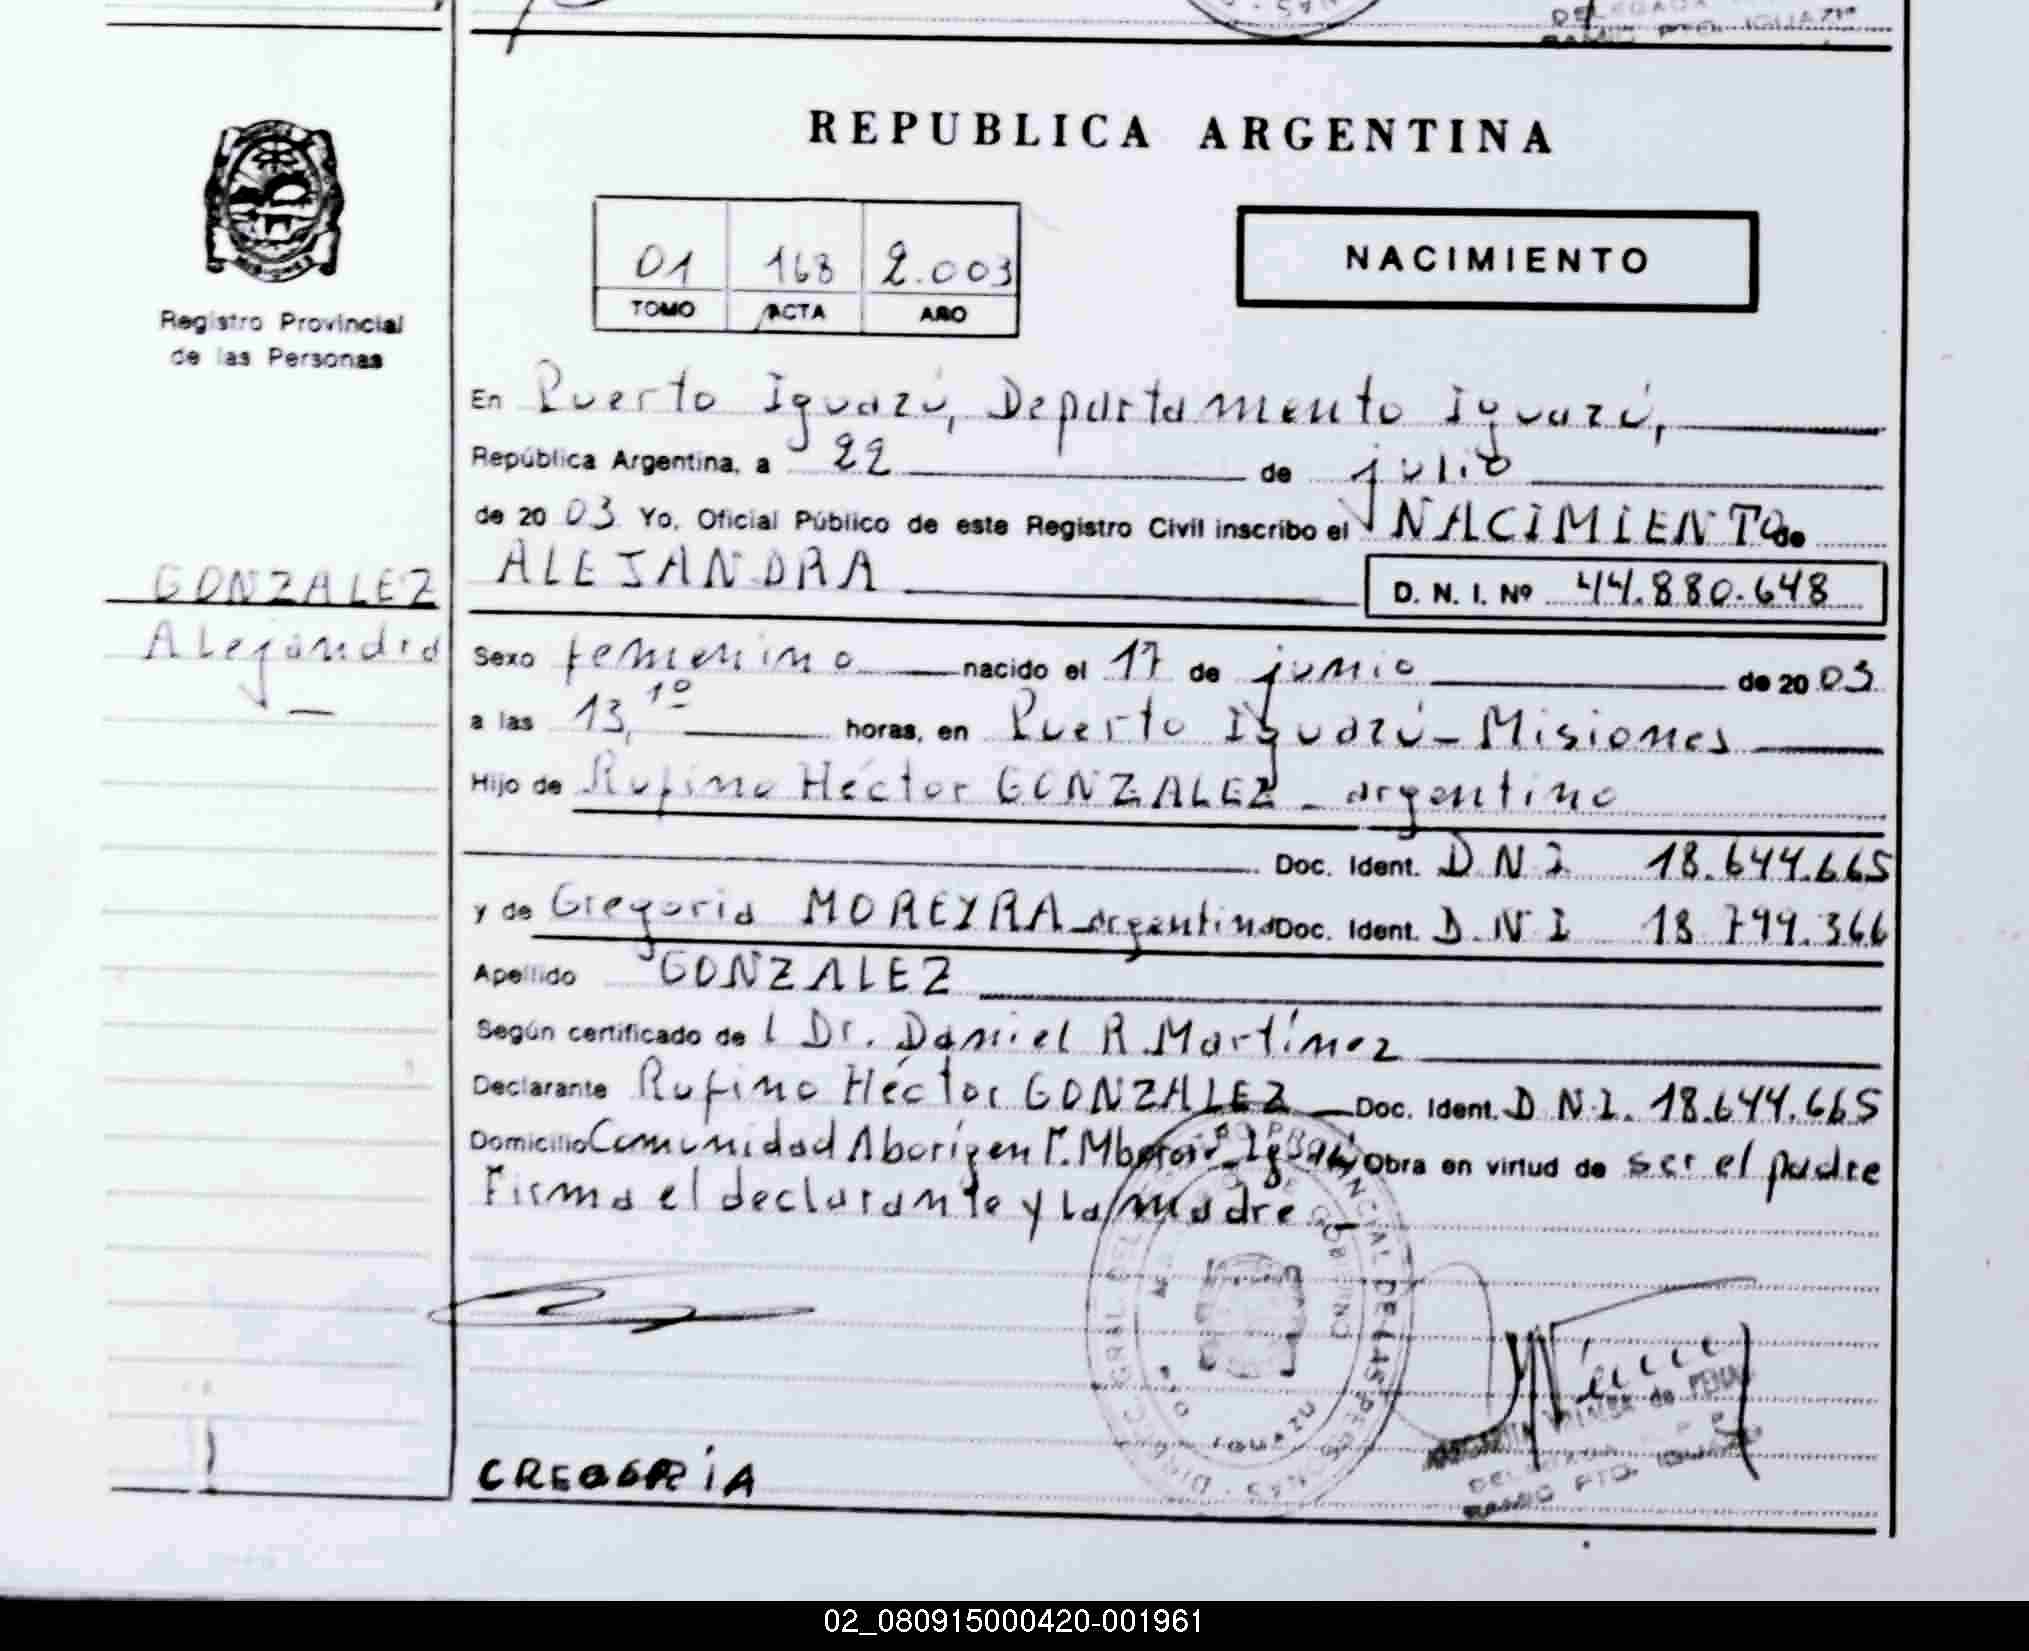 DELEGADA
REPUBLICA ARGENTINA
01 168 2.003
TOMO ACTA AÑO
NACIMIENTO
MISIONES
Registro Provincial
de las Personas
En Puerto Iguazú, Departamento Iguazú,
República Argentina, a 22 de julio
de 20 03 Yo, Oficial Público de este Registro Civil inscribo el NACIMIENTO de
GONZALEZ
Alejandra
ALEJANDRA
D. N. I. Nº 44.880.648
Sexo femenino nacido el 17 de junio de 20 03
a las 13,10 horas, en Puerto Iguazú - Misiones
Hijo de Rufino Héctor GONZALEZ - argentino
Doc. Ident. D N I 18.644.665
y de Gregoria MOREYRA - argentina Doc. Ident. D.N I 18.799.366
Apellido GONZALEZ
Según certificado de l Dr. Daniel R. Martínez
Declarante Rufino Héctor GONZALEZ Doc. Ident. D N.I. 18.644.665
Domicilio Comunidad Aborigen Obra en virtud de ser el padre
Firma el declarante y la madre. -
DIREC. GRAL. DEL PROVINCIAL DE LAS PERSONAS
CREGORiA
02_080915000420-001961